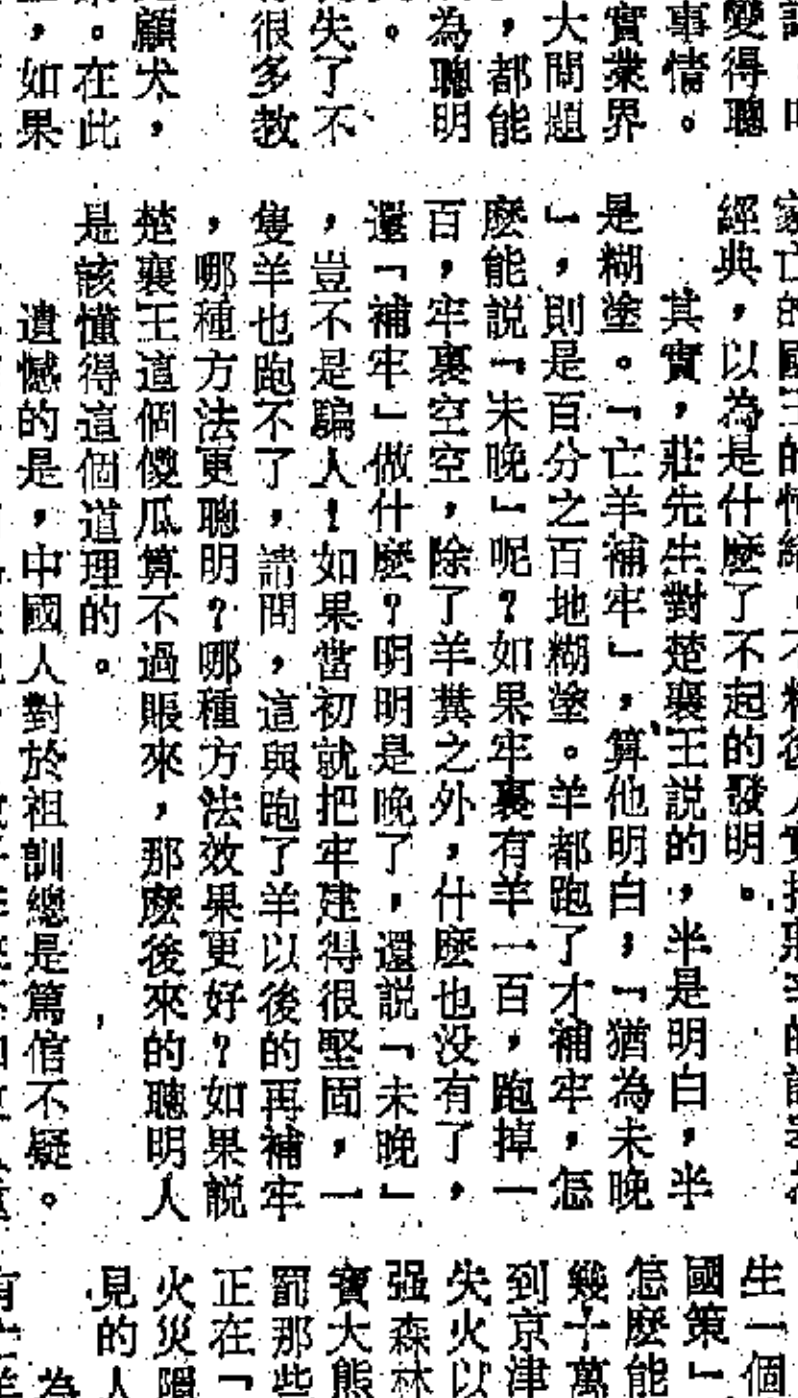 變得聰
事情。
實業界
大問題
，都能
為聰明
。
失了不
很多教
顧犬，
。在此
，如果
家亡的國王的情緒，不料後人
經典，以為是什麼了不起的發明。
其實，莊先生對楚襄王説的，半是明白，半
是糊塗。「亡羊補牢」，算他明白，「猶為未晚
」，則是百分之百地糊塗。羊都跑了才補牢，怎
麼能説「未晚」呢？如果牢裏有羊一百，跑掉一
百，牢裏空空，除了羊糞之外，什麼也没有了，
還「補牢」做什麼？明明是晚了，還説「未晚」
，豈不是騙人！如果當初就把牢建得很堅固，一
隻羊也跑不了，請問，這與跑了羊以後的再補牢
，哪種方法更聰明？哪種方法效果更好？如果説
楚襄王這個傻瓜算不過賬來，那麼後來的聰明人
是該懂得這個道理的。
遺憾的是，中國人對於祖訓總是篤信不疑。
生一個
國策」
怎麼能
幾十萬
到京津
失火以
强森林
寶大熊
罰那些
正在「
火災隱
見的人
為